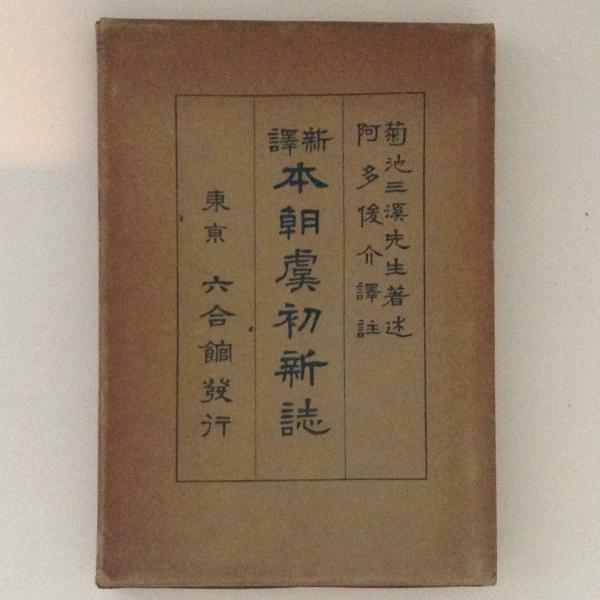 菊池三溪先生著述
阿多俊介譯註
新譯
本朝虞初新誌
東京 六合館發行